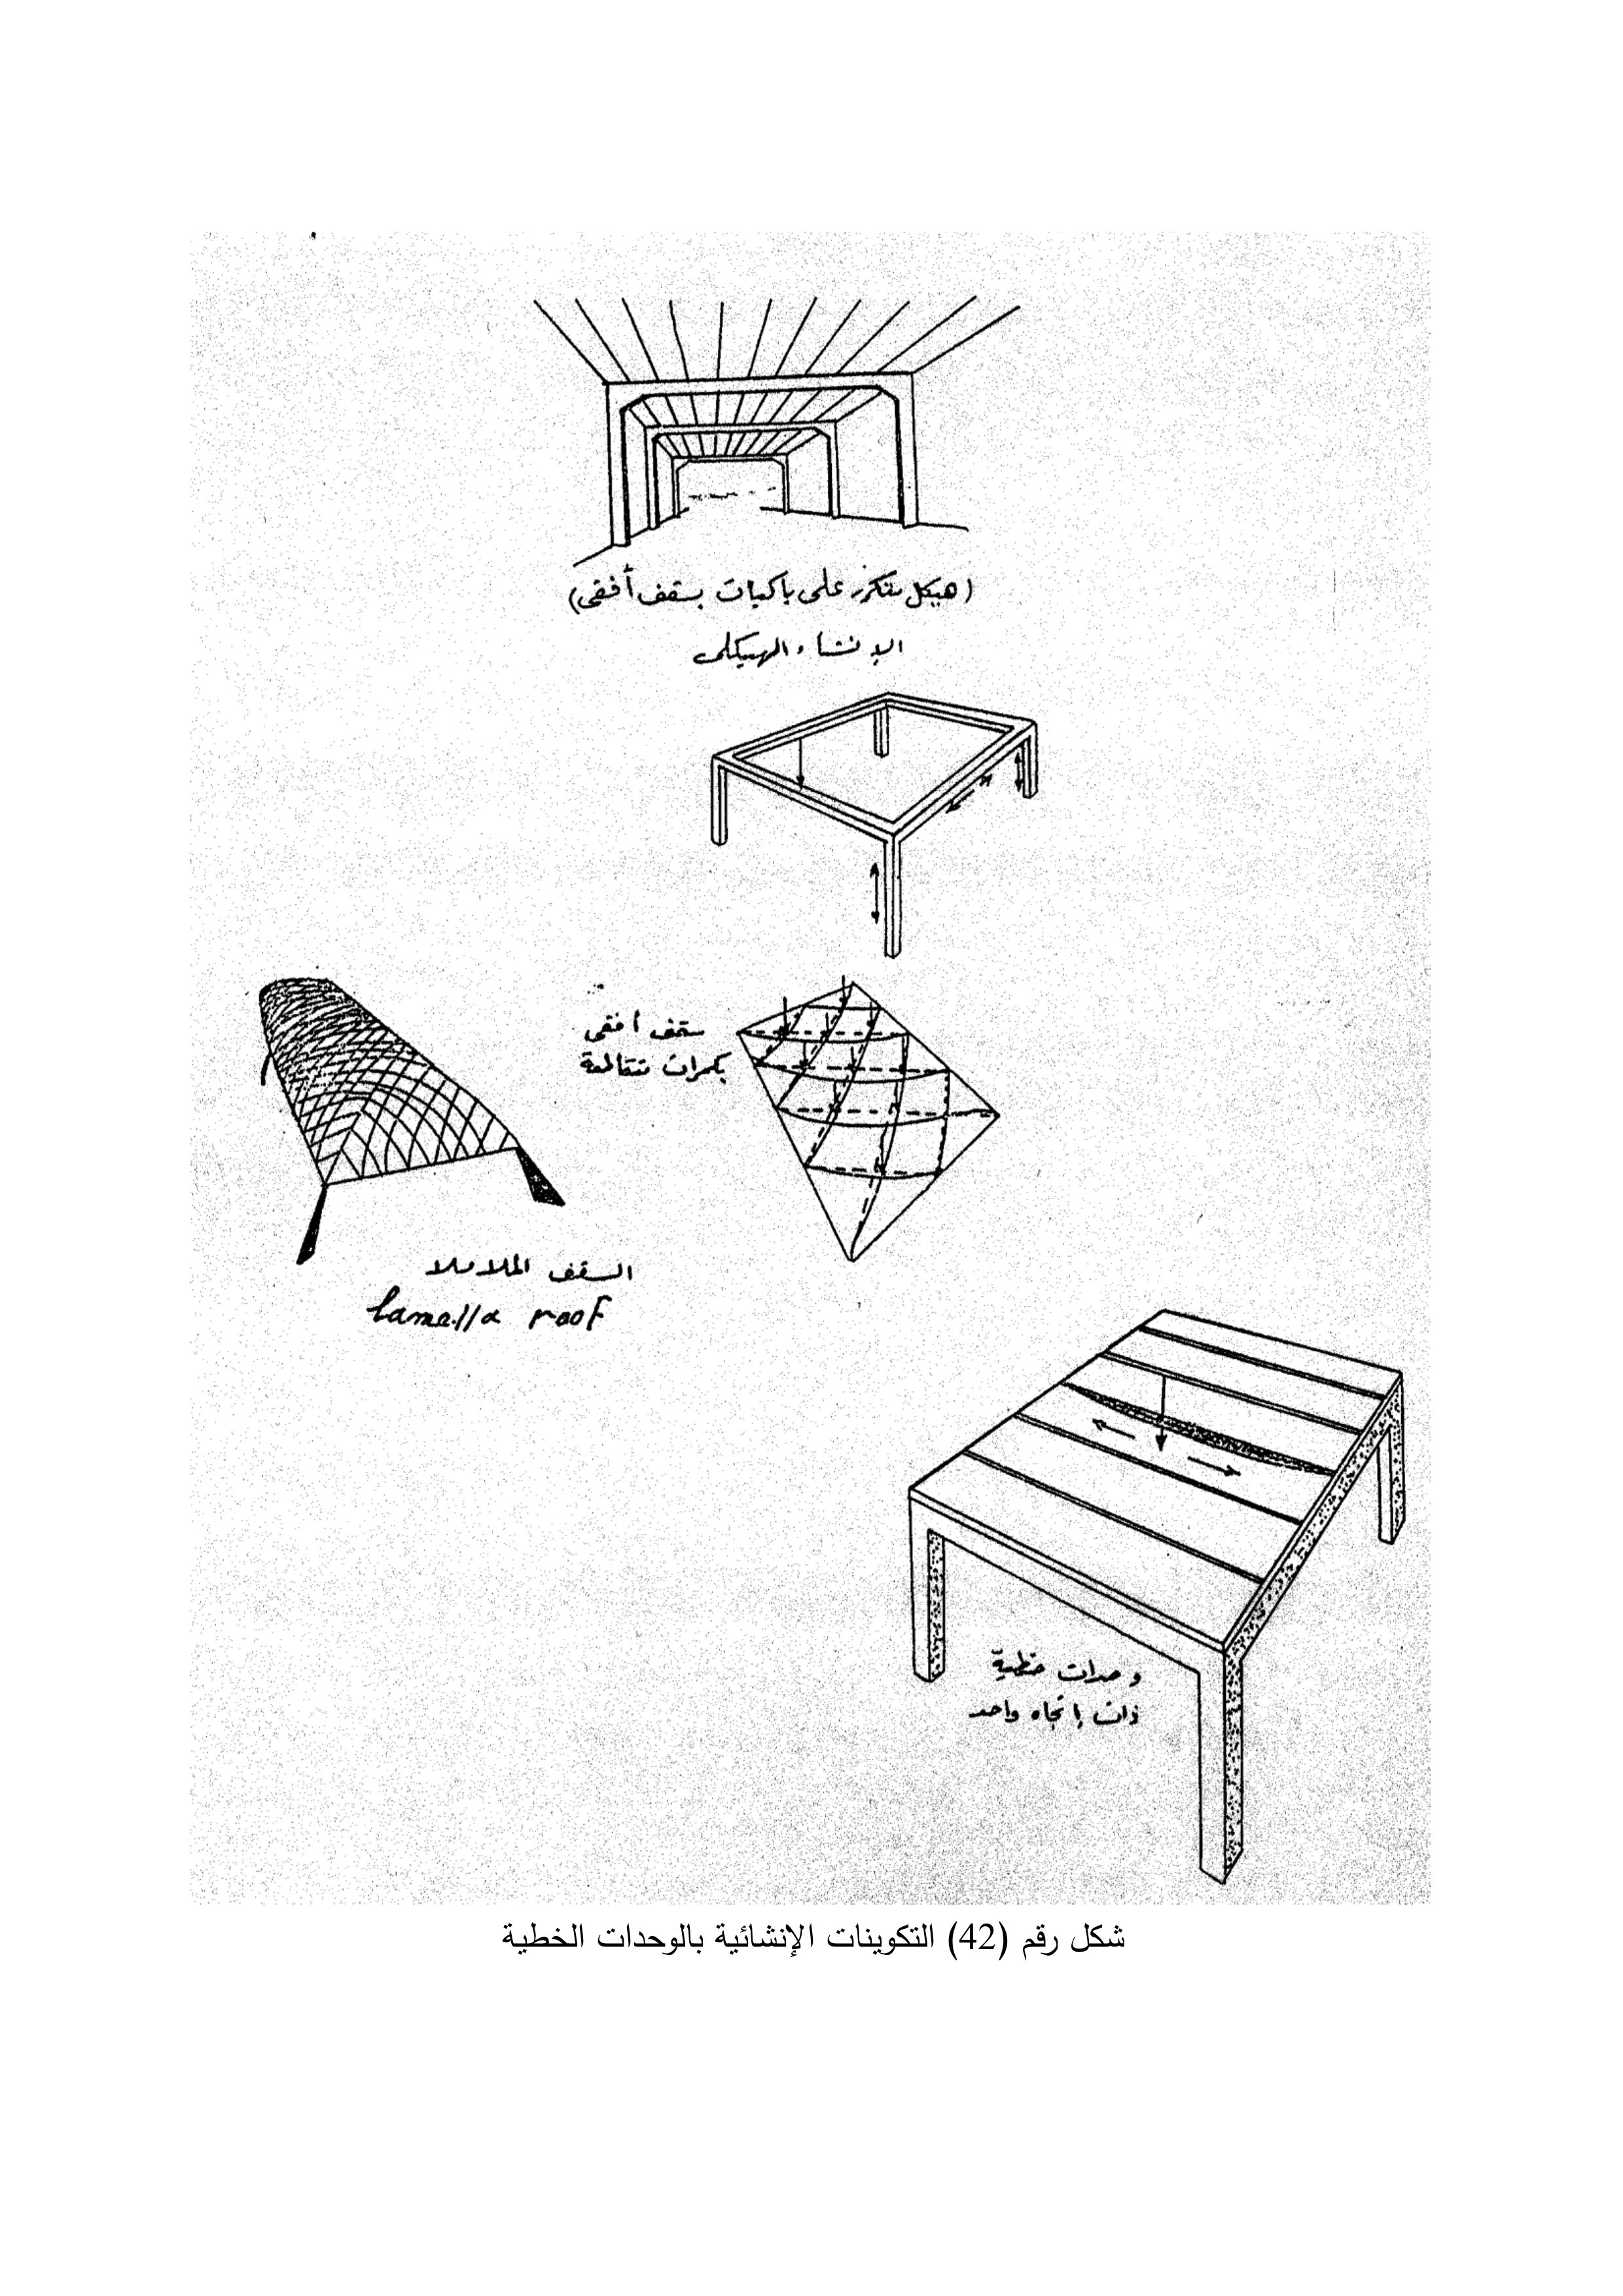 (هيكل متكرر على باكيات بسقف أفقى)
الإنشاء الهيكلى
سقف أفقى
بكمرات متقاطعة
السقف الملاملا
Lamella roof
وحدات خطية
ذات إتجاه واحد
شكل رقم (42) التكوينات الإنشائية بالوحدات الخطية